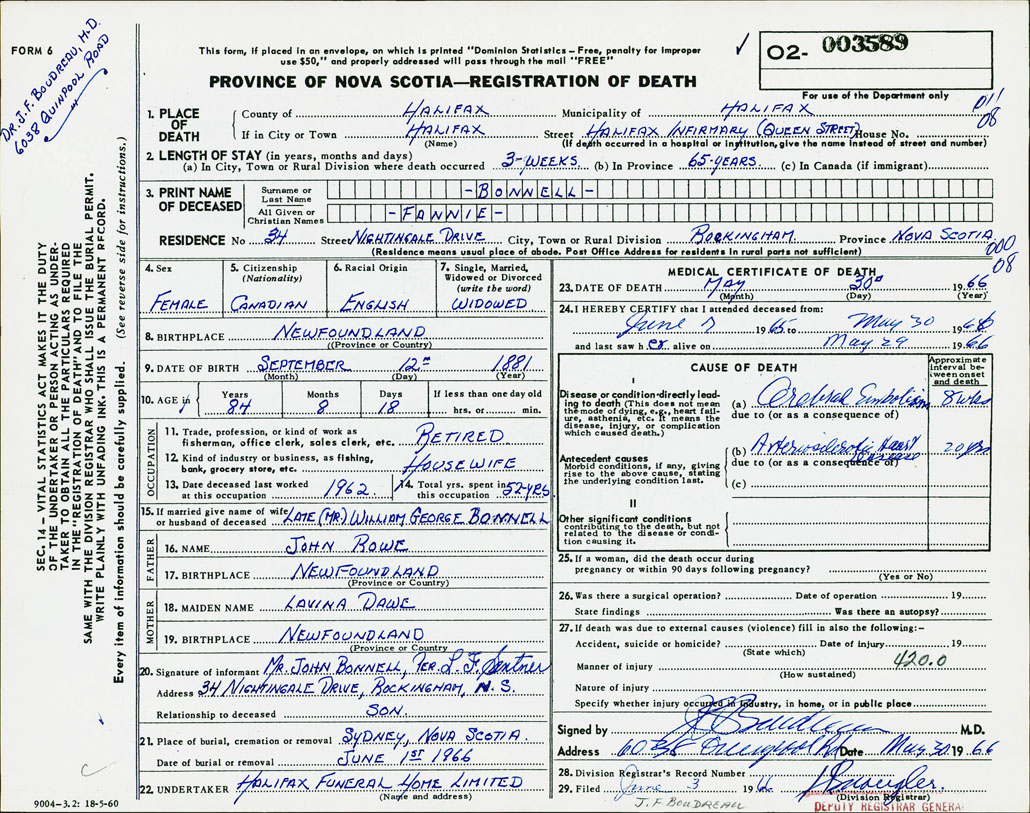 FORM 6
DR. J. F. BOUDREAU, M.D.
6038 QUINPOOL ROAD
This form, if placed in an envelope, on which is printed "Dominion Statistics – Free, penalty for improper
use $50," and properly addressed will pass through the mail "FREE"
PROVINCE OF NOVA SCOTIA—REGISTRATION OF DEATH
✓ 02- 003589
For use of the Department only
011
08
1. PLACE OF DEATH
County of HALIFAX Municipality of HALIFAX
If in City or Town HALIFAX Street HALIFAX INFIRMARY (QUEEN STREET) House No.
(Name) (If death occurred in a hospital or institution, give the name instead of street and number)
2. LENGTH OF STAY (in years, months and days)
(a) In City, Town or Rural Division where death occurred 3-WEEKS. (b) In Province 65-YEARS. (c) In Canada (if immigrant)
3. PRINT NAME OF DECEASED
Surname or Last Name -BONNELL-
All Given or Christian Names -FANNIE-
RESIDENCE No 34 Street NIGHTINGALE DRIVE City, Town or Rural Division ROCKINGHAM. Province NOVA SCOTIA
(Residence means usual place of abode. Post Office Address for residents in rural parts not sufficient)
000
08
SEC. 14 – VITAL STATISTICS ACT MAKES IT THE DUTY
OF THE UNDERTAKER OR PERSON ACTING AS UNDER-
TAKER TO OBTAIN ALL THE PARTICULARS REQUIRED
IN THE "REGISTRATION OF DEATH" AND TO FILE THE
SAME WITH THE DIVISION REGISTRAR WHO SHALL ISSUE THE BURIAL PERMIT.
WRITE PLAINLY WITH UNFADING INK. THIS IS A PERMANENT RECORD.
Every item of information should be carefully supplied. (See reverse side for instructions.)
4. Sex FEMALE
5. Citizenship (Nationality) CANADIAN
6. Racial Origin ENGLISH
7. Single, Married, Widowed or Divorced (write the word) WIDOWED
8. BIRTHPLACE NEWFOUNDLAND
(Province or Country)
9. DATE OF BIRTH SEPTEMBER 12TH 1881
(Month) (Day) (Year)
10. AGE Years 84 Months 8 Days 18 If less than one day old hrs. or min.
OCCUPATION
11. Trade, profession, or kind of work as fisherman, office clerk, sales clerk, etc. RETIRED.
12. Kind of industry or business, as fishing, bank, grocery store, etc. HOUSEWIFE
13. Date deceased last worked at this occupation 1962. 14. Total yrs. spent in this occupation 52-YRS
15. If married give name of wife or husband of deceased LATE (MR.) WILLIAM GEORGE BONNELL
FATHER
16. NAME JOHN ROWE
17. BIRTHPLACE NEWFOUNDLAND
(Province or Country)
MOTHER
18. MAIDEN NAME LAVINA DAWE
19. BIRTHPLACE NEWFOUNDLAND
(Province or Country)
20. Signature of informant MR. JOHN BONNELL, PER. L. F. Sentner
Address 34 NIGHTINGALE DRIVE, ROCKINGHAM, N.S.
Relationship to deceased SON.
21. Place of burial, cremation or removal SYDNEY, NOVA SCOTIA.
Date of burial or removal JUNE 1ST 1966
22. UNDERTAKER HALIFAX FUNERAL HOME LIMITED
(Name and address)
9004–3.2: 18-5-60
MEDICAL CERTIFICATE OF DEATH
23. DATE OF DEATH May 30 1966
(Month) (Day) (Year)
24. I HEREBY CERTIFY that I attended deceased from:
June 7 1965 to May 30 1966
and last saw her alive on May 29 1966
CAUSE OF DEATH
Approximate interval between onset and death
I
Disease or condition directly leading to death (This does not mean the mode of dying, e.g., heart failure, asthenia, etc. It means the disease, injury, or complication which caused death.)
(a) Cerebral Embolism 8 wks
due to (or as a consequence of)
Antecedent causes
Morbid conditions, if any, giving rise to the above cause, stating the underlying condition last.
(b) Arteriosclerotic Heart Disease 20 yrs
due to (or as a consequence of)
(c)
II
Other significant conditions
contributing to the death, but not related to the disease or condition causing it.
25. If a woman, did the death occur during
pregnancy or within 90 days following pregnancy?
(Yes or No)
26. Was there a surgical operation? Date of operation 19
State findings Was there an autopsy?
27. If death was due to external causes (violence) fill in also the following:-
Accident, suicide or homicide? Date of injury 19
(State which)
Manner of injury 420.0
(How sustained)
Nature of injury
Specify whether injury occurred in industry, in home, or in public place
Signed by J F Boudreau M.D.
Address 6038 Quinpool Rd Date May 30 1966
28. Division Registrar's Record Number
29. Filed June 3 1966
(Division Registrar)
J. F. BOUDREAU
DEPUTY REGISTRAR GENERAL